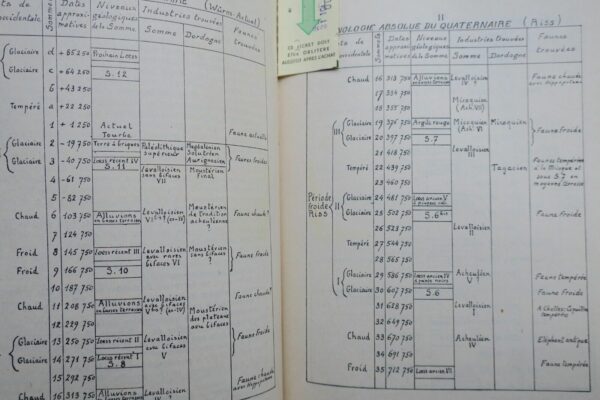 (Würm-Actuel)
Sommets
Dates approximatives
Niveaux géologiques de la Somme
Industries trouvées
Somme
Dordogne
Faunes trouvées
Glaciaire d +85 250 Prochain Loess
Glaciaire c +64 250 S.12
b +43 250
Tempéré a +22 250
1 +1 250 Actuel Tourbe Faune actuelle
Glaciaire 2 -19 750 Terre à briques Paléolithique supérieur Magdalénien Solutréen Aurignacien Faunes froides
Glaciaire 3 -40 750 Loess récent IV S.11 Levalloisien sans bifaces VII Moustérien Final
4 -61 750
5 -82 750
Chaud 6 103 750 Alluvions en basses terrasses Levalloisien Moustérien de tradition acheuléenne ? Faune chaude?
7 124 750
Froid 8 145 750 Loess récent III Levalloisien avec rares bifaces VI Moustérien sans bifaces ? Faune froide
Froid 9 166 750 S.10
10 187 750
Chaud 11 208 750 Alluvions en basses terrasses Levalloisien avec bifaces Moustérien des plateaux avec bifaces Faune chaude?
12 229 750
Glaciaire 13 250 750 Loess récent II Levalloisien avec bifaces V Faune froide
Glaciaire 14 271 750 Loess récent I S.8
15 292 750
Chaud 16 313 750 Alluvions en basses terrasses Levalloisien Faune chaude avec Hippopotame
CE TICKET DOIT
ETRE OBLITERE
AUSSITOT APRES L'ACHAT
11
NOLOGIE ABSOLUE DU QUATERNAIRE (Riss)
Dates approximatives
Niveaux géologiques de la Somme
Industries trouvées
Somme
Dordogne
Faunes trouvées
Chaud 16 313 750 Alluvions Levalloisien IV ? Faune chaude avec Hippopotame
17 334 750
18 355 750 Micoquien (Ach. VII)
Période froide Riss
III Glaciaire 19 376 750 Argile rouge Micoquien (Ach. VI) Micoquien Faune froide
Glaciaire 20 397 750 S.7
21 418 750 Levalloisien III
Tempéré 22 439 750 Tayacien Faune tempérée à la Micoque et sous S.7 en moyenne terrasse
23 460 750
II Glaciaire 24 481 750 Loess ancien V Faune froide
Glaciaire 25 502 750 S.6 bis
26 523 750 Levalloisien II
Tempéré 27 544 750
28 565 750
I Glaciaire 29 586 750 Loess ancien IV Acheuléen V ? Faune tempérée
Glaciaire 30 607 750 S.6 Faune froide
31 628 750 Levalloisien I
32 649 750
Chaud 33 670 750 Acheuléen IV Elephas antiquus
34 691 750
Froid 35 712 750 Loess ancien III Faune tempérée